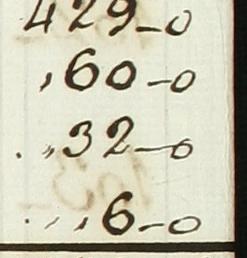 429-0
,60-0
.,32-0
.,,6-0